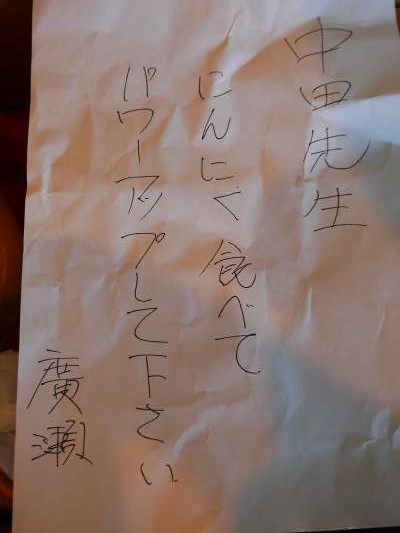 中田先生
にんにく食べて
パワーアップして下さい
廣瀬